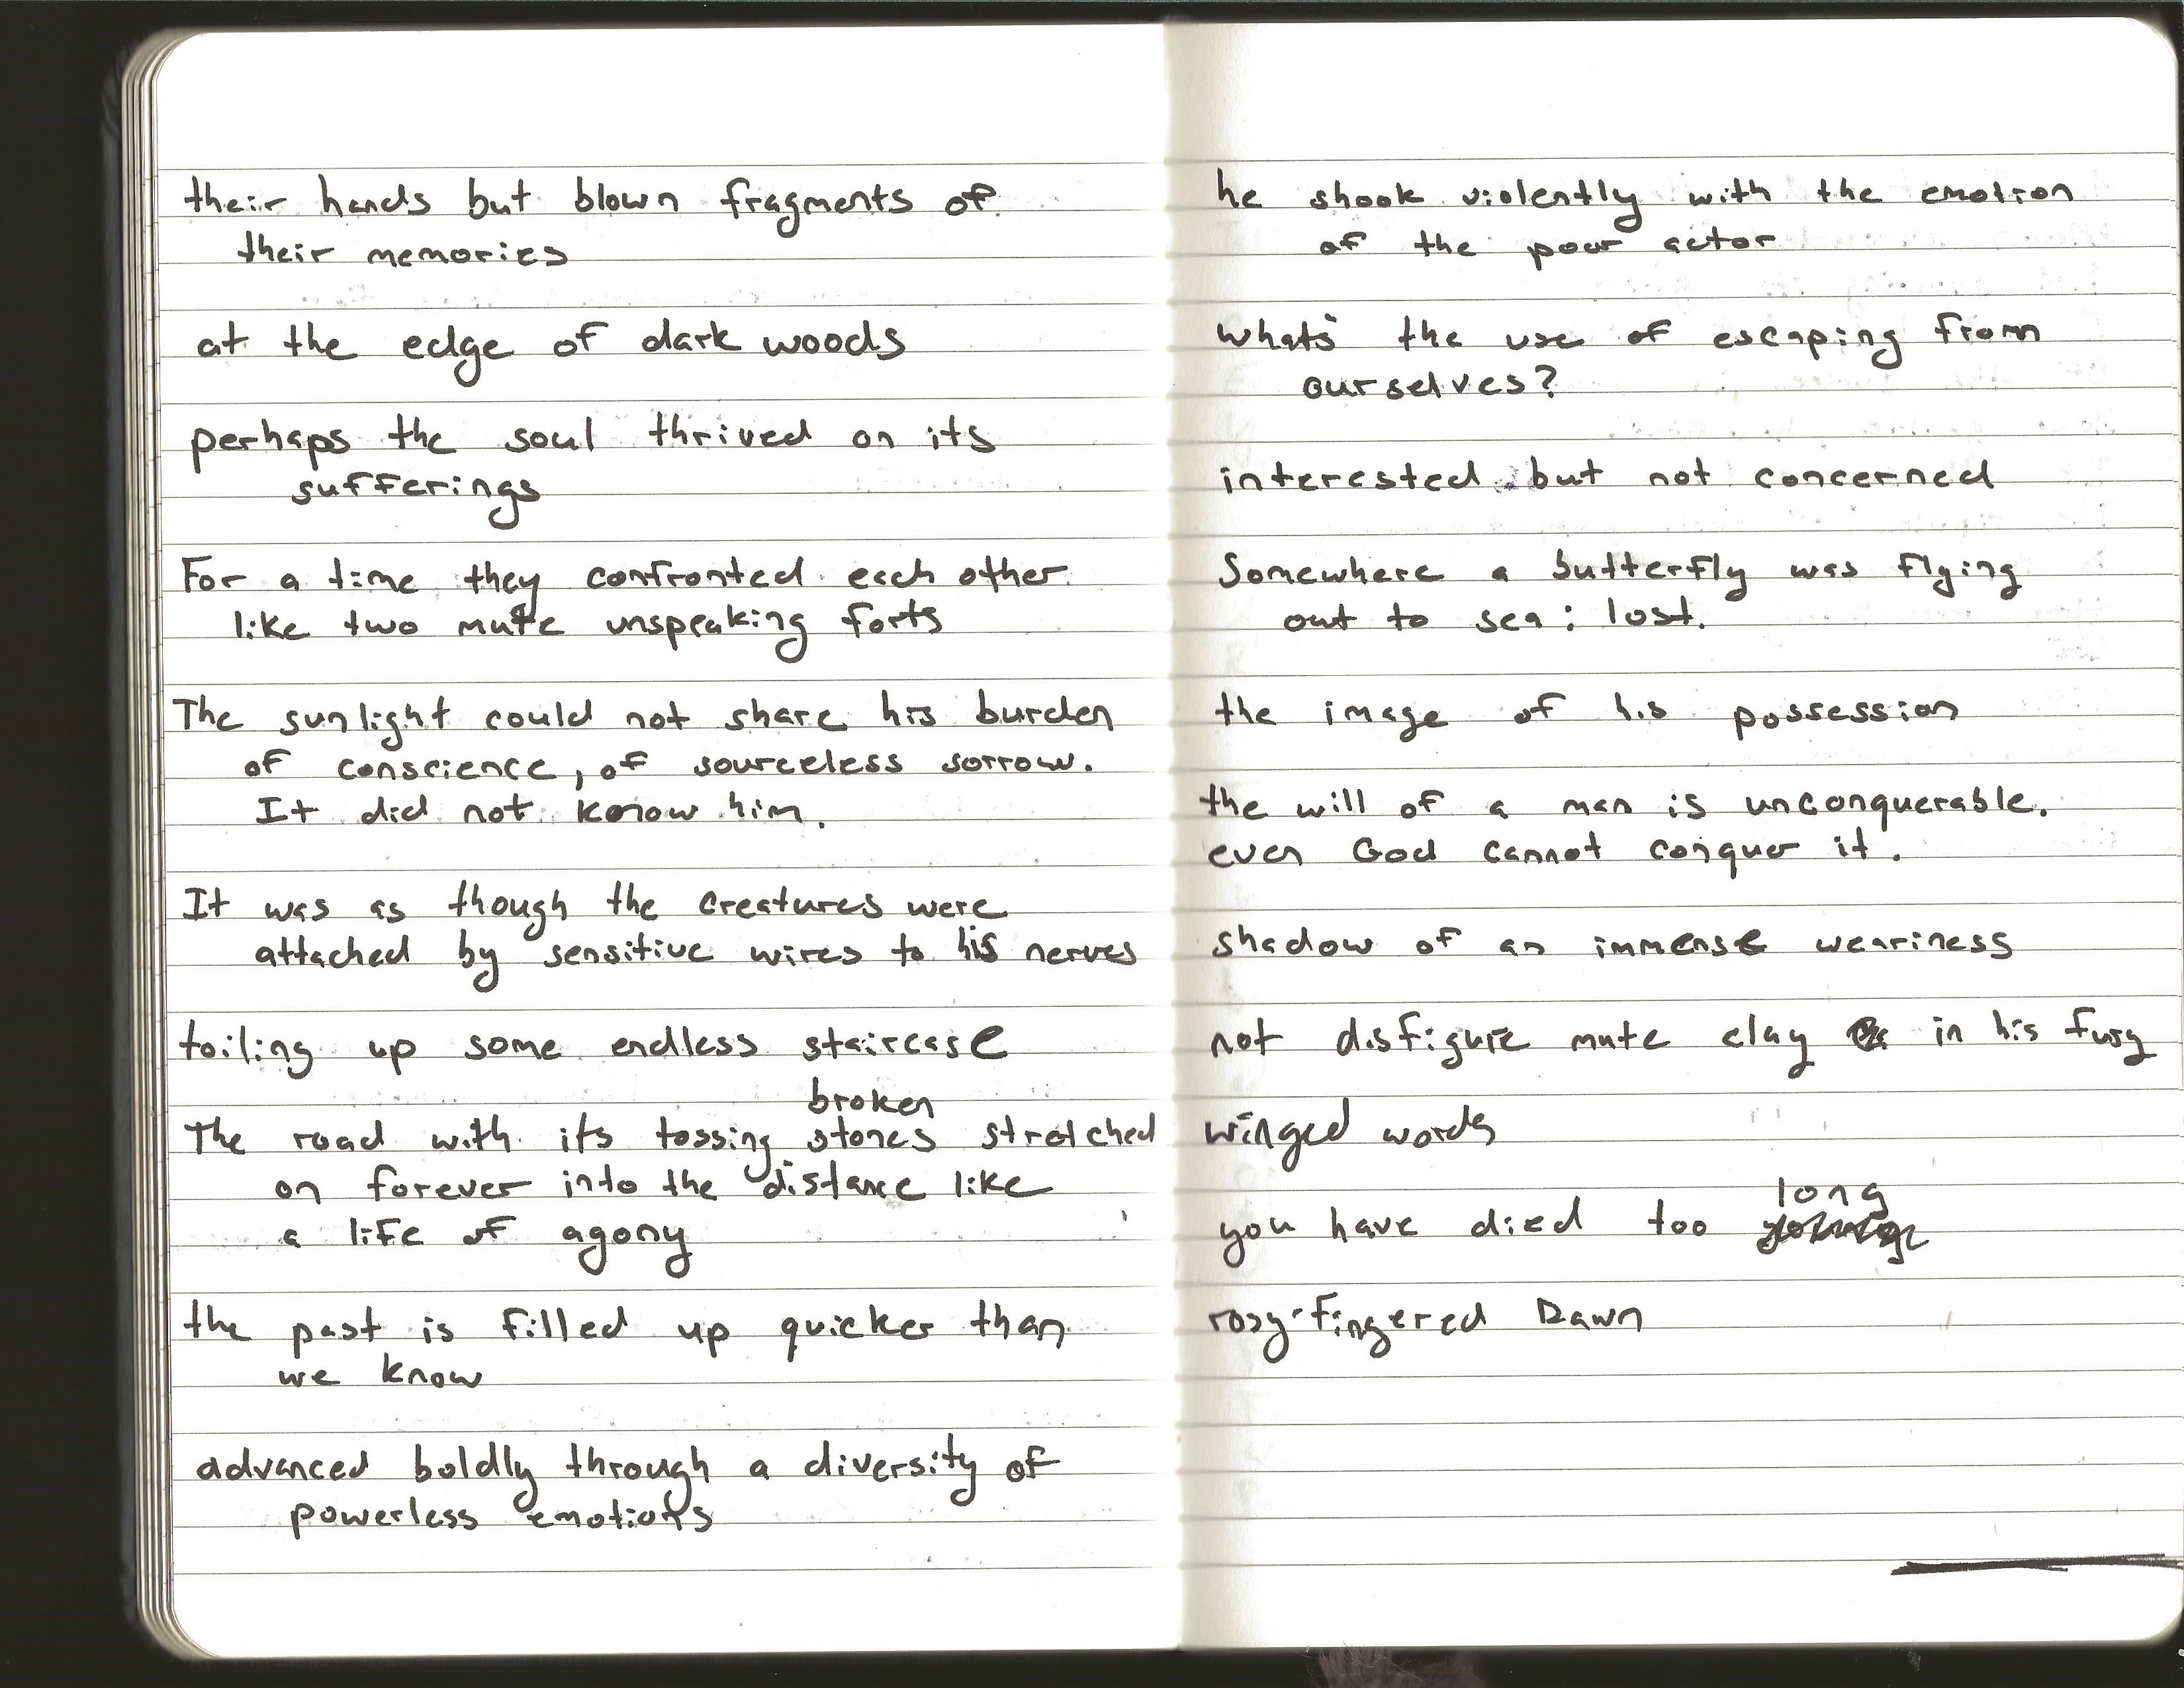 their hands but blown fragments of
their memories
at the edge of dark woods
perhaps the soul thrived on its
sufferings
For a time they confronted each other
like two mute unspeaking forts
The sunlight could not share his burden
of conscience, of sourceless sorrow.
It did not know him.
It was as though the creatures were
attached by sensitive wires to his nerves
toiling up some endless staircase
broken
The road with its tossing stones stretched
on forever into the distance like
a life of agony
the past is filled up quicker than
we know
advanced boldly through a diversity of
powerless emotions
he shook violently with the emotion
of the poor actor
what's the use of escaping from
ourselves?
interested but not concerned
Somewhere a butterfly was flying
out to sea: lost.
the image of his possession
the will of a man is unconquerable.
even God cannot conquer it.
shadow of an immense weariness
not disfigure mute clay in his fury
winged words
long
you have died too
rosy-fingered Dawn